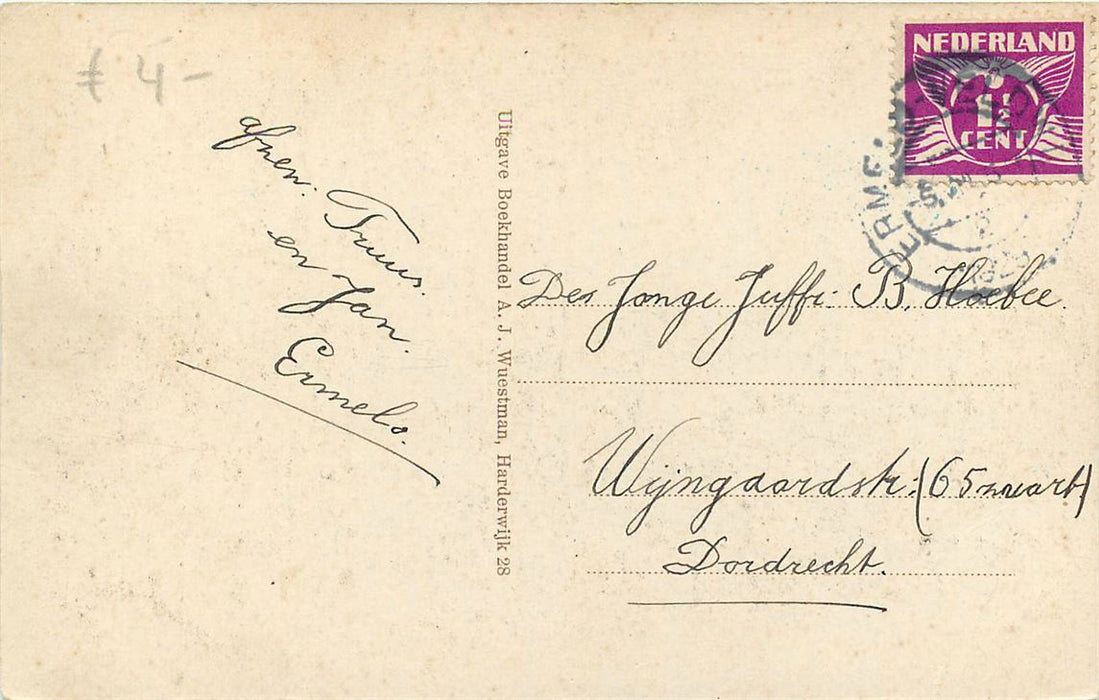 ƒ 4-
afzen: Truus.
en Jan.
Ermelo.
Uitgave Boekhandel A. J. Wuestman, Harderwijk 28
NEDERLAND
1½
CENT
ERMELO
Jonge Juffr. B. Hoebee.
Wijngaardstr: (65 zwart)
Dordrecht.